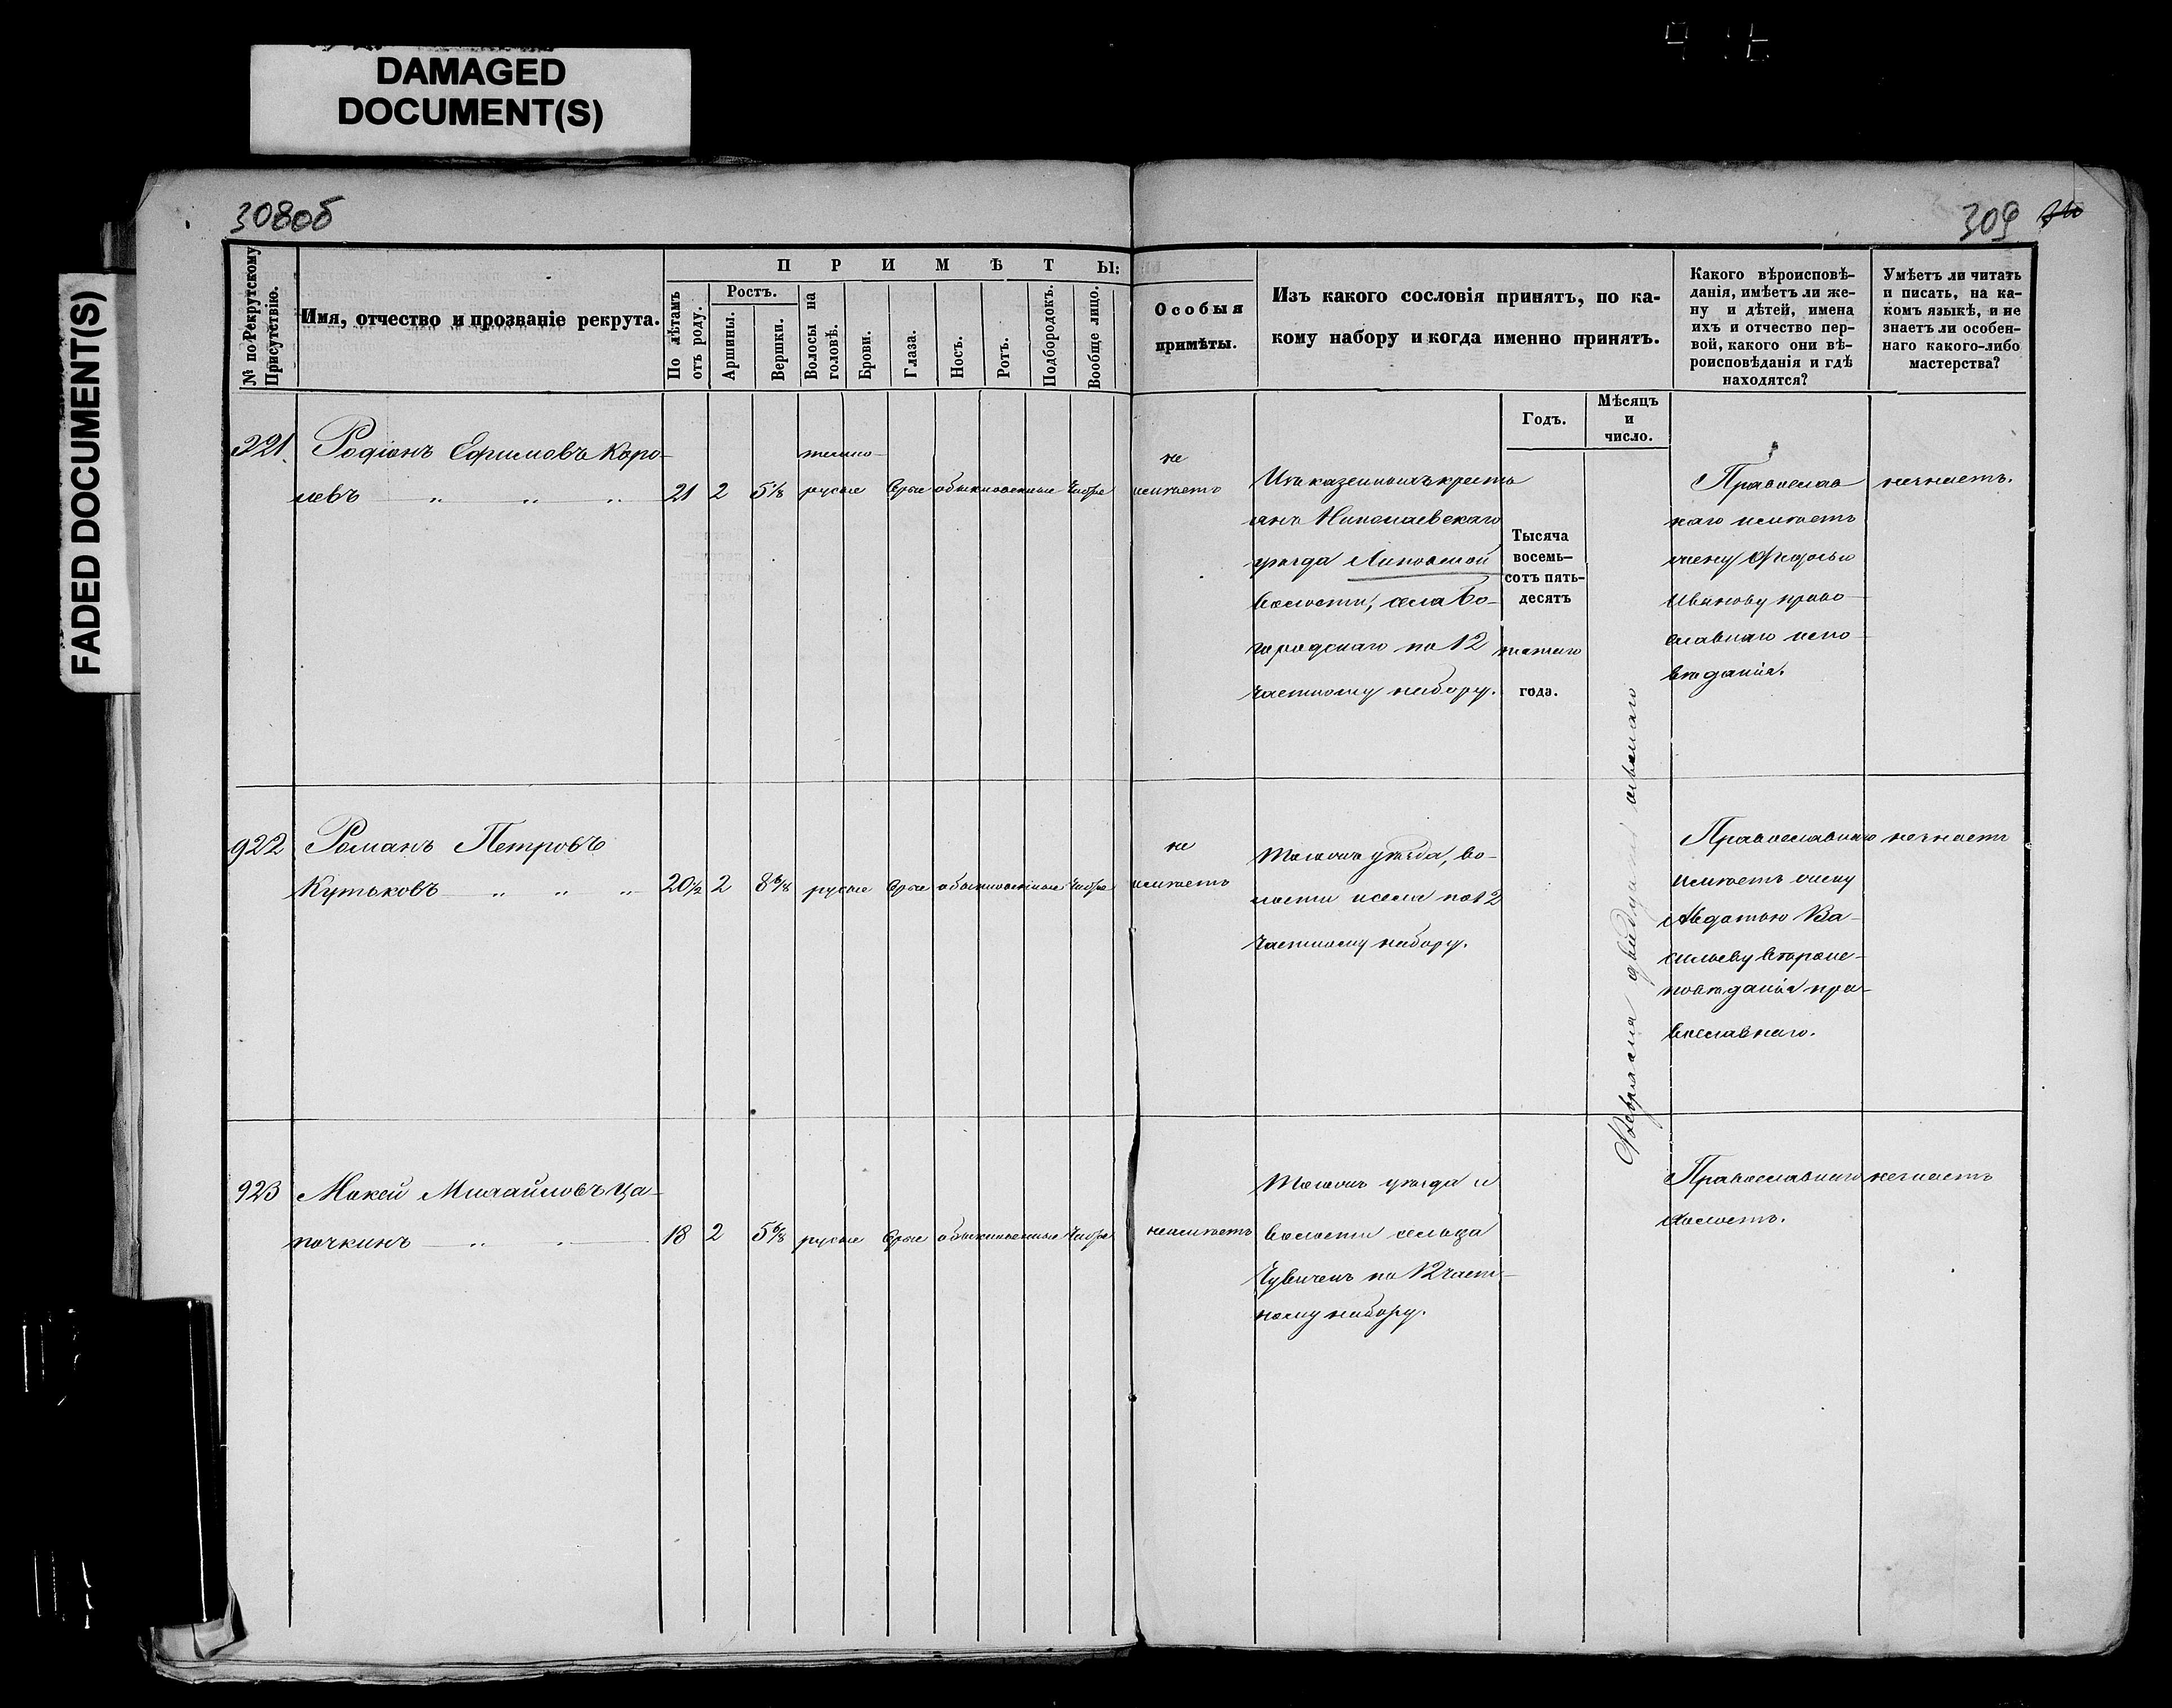 DAMAGED
DOCUMENT(S)
FADED DOCUMENT(S)
308об
309
№ по Рекрутскому
Присутствію.
Имя, отчество и прозваніе рекрута.
ПРИМѢТЫ:
По лѣтамъ
отъ роду.
Ростъ.
Аршины.
Вершки.
Волосы на
головѣ.
Брови.
Глаза.
Носъ.
Ротъ.
Подбородокъ.
Вообще лицо.
Особыя
примѣты.
Изъ какого сословія принятъ, по ка-
кому набору и когда именно принятъ.
Какого вѣроисповѣ-
данія, имѣетъ ли же-
ну и дѣтей, имена
ихъ и отчество пер-
вой, какого они вѣ-
роисповѣданія и гдѣ
находятся?
Умѣетъ ли читать
и писать, на ка-
комъ языкѣ, и не
знаетъ ли особен-
наго какого-либо
мастерства?
Годъ.
Мѣсяцъ
и
число.
921. Родіонъ Ефимовъ Коро-
левъ
21 2 5 1/8
темно-
русые сѣрые обыкновенные чистое
не
имѣетъ
Изъ казенныхъ кресть
янъ Николаевскаго
уѣзда Липовской
волости, села Бо-
городскаго по 12
частному набору.
Тысяча
восемь-
сотъ пять-
десятъ
пятаго
года.
Февраля двадцать осьмаго
Православ
наго имѣетъ
жену
Иванову право-
славнаго испо-
вѣданія.
незнаетъ.
922 Романъ Петровъ
Кутьковъ
20 1/2 2 8 6/8 русые сѣрые обыкновенные чистое
не
имѣетъ
Тогожъ уѣзда, во-
лости и села по 12
частному набору.
Православнаго
имѣетъ жену
Авдотью Ва-
сильеву вѣроис-
повѣданія пра-
вославнаго.
незнаетъ
923 Мокей Михайловъ Ца-
почкинъ
18 2 5 6/8 русые сѣрые обыкновенные чистое
неимѣетъ
Тогожъ уѣзда и
волости сельца
по 12 част-
ному набору.
Православнаго
холостъ.
незнаетъ